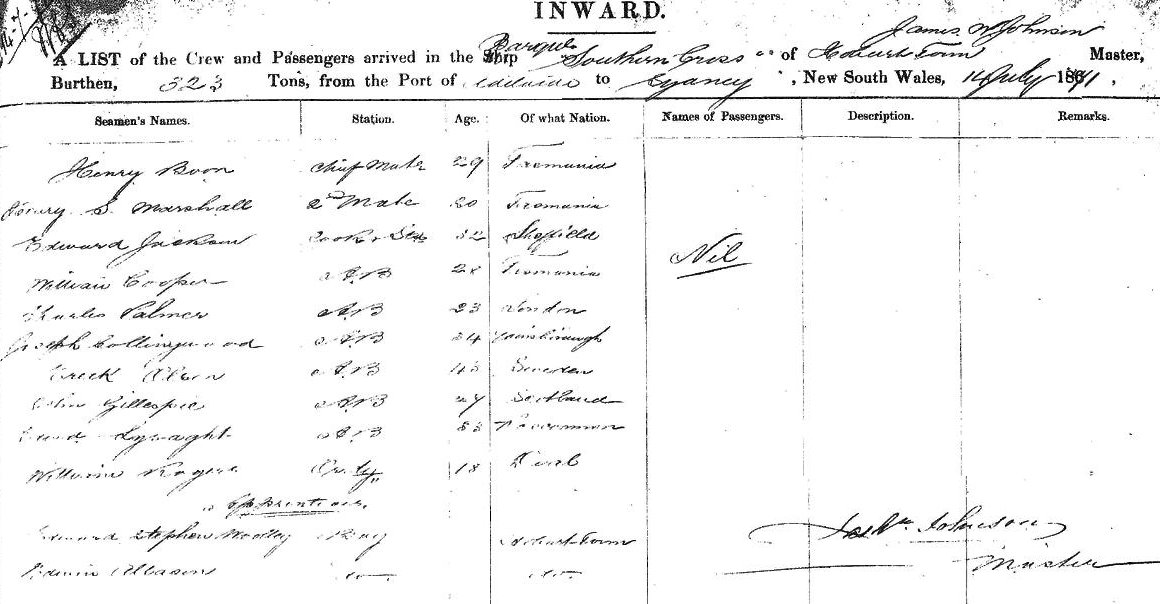 INWARD.
James W Johnson
A LIST of the Crew and Passengers arrived in the Ship Barque Southern Cross of Hobart Town Master,
Burthen, 323 Tons, from the Port of Adelaide to Sydney, New South Wales, 14 July 1871.
Seamen's Names. Station. Age. Of what Nation. Names of Passengers. Description. Remarks.
Henry Boon Chief Mate 29 Tasmania
Henry S. Marshall 2nd Mate 20 Tasmania
Edward Jackson Cook & Std 32 Sheffield
Nil
William Cooper AB 28 Tasmania
Charles Palmer AB 23 London
Joseph Collingwood AB 34
Olsen AB 45 Sweden
Gillespie AB 27 Scotland
Lysaght AB
William Rogers 18
Apprentices
Edward Stephen Boy Hobart Town
Edwin do do
Jas W Johnson
Master